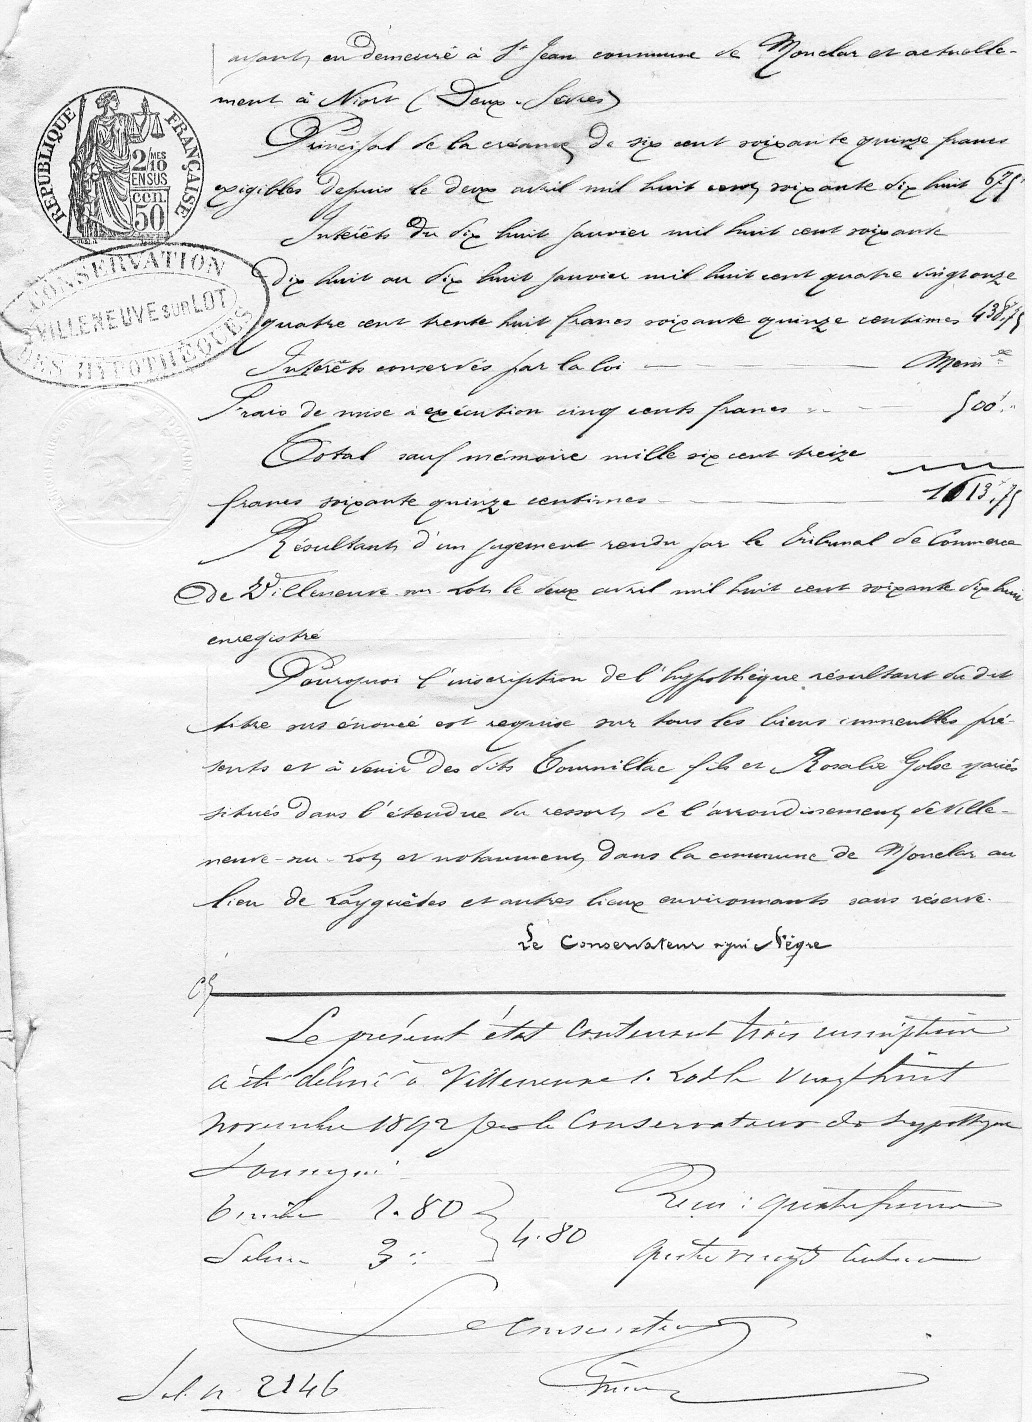 ayant, en demeuré à St Jean commune de Monclar et actuelle-
ment à Niort (Deux-Sèvres)
Principal de la créance, de six cent soixante quinze francs
exigibles depuis le deux avril mil huit cent soixante dix huit 675f
Intérêts du dix huit janvier mil huit cent soixante
dix huit au dix huit janvier mil huit cent quatre vingt onze
quatre cent trente huit francs soixante quinze centimes 438f,75
Intérêts conservés par la loi — — Memre
Frais de mise à exécution cinq cents francs — 500f,"
Total sauf mémoire mille six cent treize
francs soixante quinze centimes — 1613f,75
Résultant, d'un jugement rendu par le tribunal de Commerce
de Villeneuve sur Lot, le deux avril mil huit cent soixante dix huit
enregistré
Pourquoi l'inscription de l'hypothèque résultant du dit
titre sus énoncé est requise sur tous les biens immeubles pré-
sents et à venir des dits Tournillac fils et Rosalie Golse mariés
situés dans l'étendue du ressort, de l'arrondissement, de Ville-
neuve-sur-Lot, et notamment, dans la commune de Monclar au
lieu de Layguêdes et autres lieux environnants sans réserve.
Le Conservateur signé Nègre
REPUBLIQUE FRANÇAISE
2/10MES
EN SUS
CEN.
50
CONSERVATION
VILLENEUVE sur LOT
DES HYPOTHÈQUES
Le présent état contenant trois inscriptions
a été délivré à Villeneuve s. Lot le vingt huit
novembre 1892 par le Conservateur des hypothèques
Soussigné
Timbre 1.80
4.80
Salaire 3 "
Reçu : quatre francs
quatre vingts centimes
Le Conservateur
Sal. n. 2146